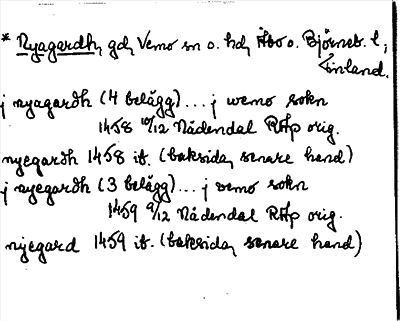 * Nyagardh, gd, Vemo sn o. hd, Åbo o. Björneb. l,
Finland.
j nyagardh (4 belägg) ... j wemo sokn
1458 10/12 Nådendal RAp orig.
nyegardh 1458 ib. (baksida, senare hand)
j nyegardh (3 belägg) ... j vemo sokn
1459 9/12 Nådendal RAp orig.
nyegard 1459 ib. (baksida, senare hand)